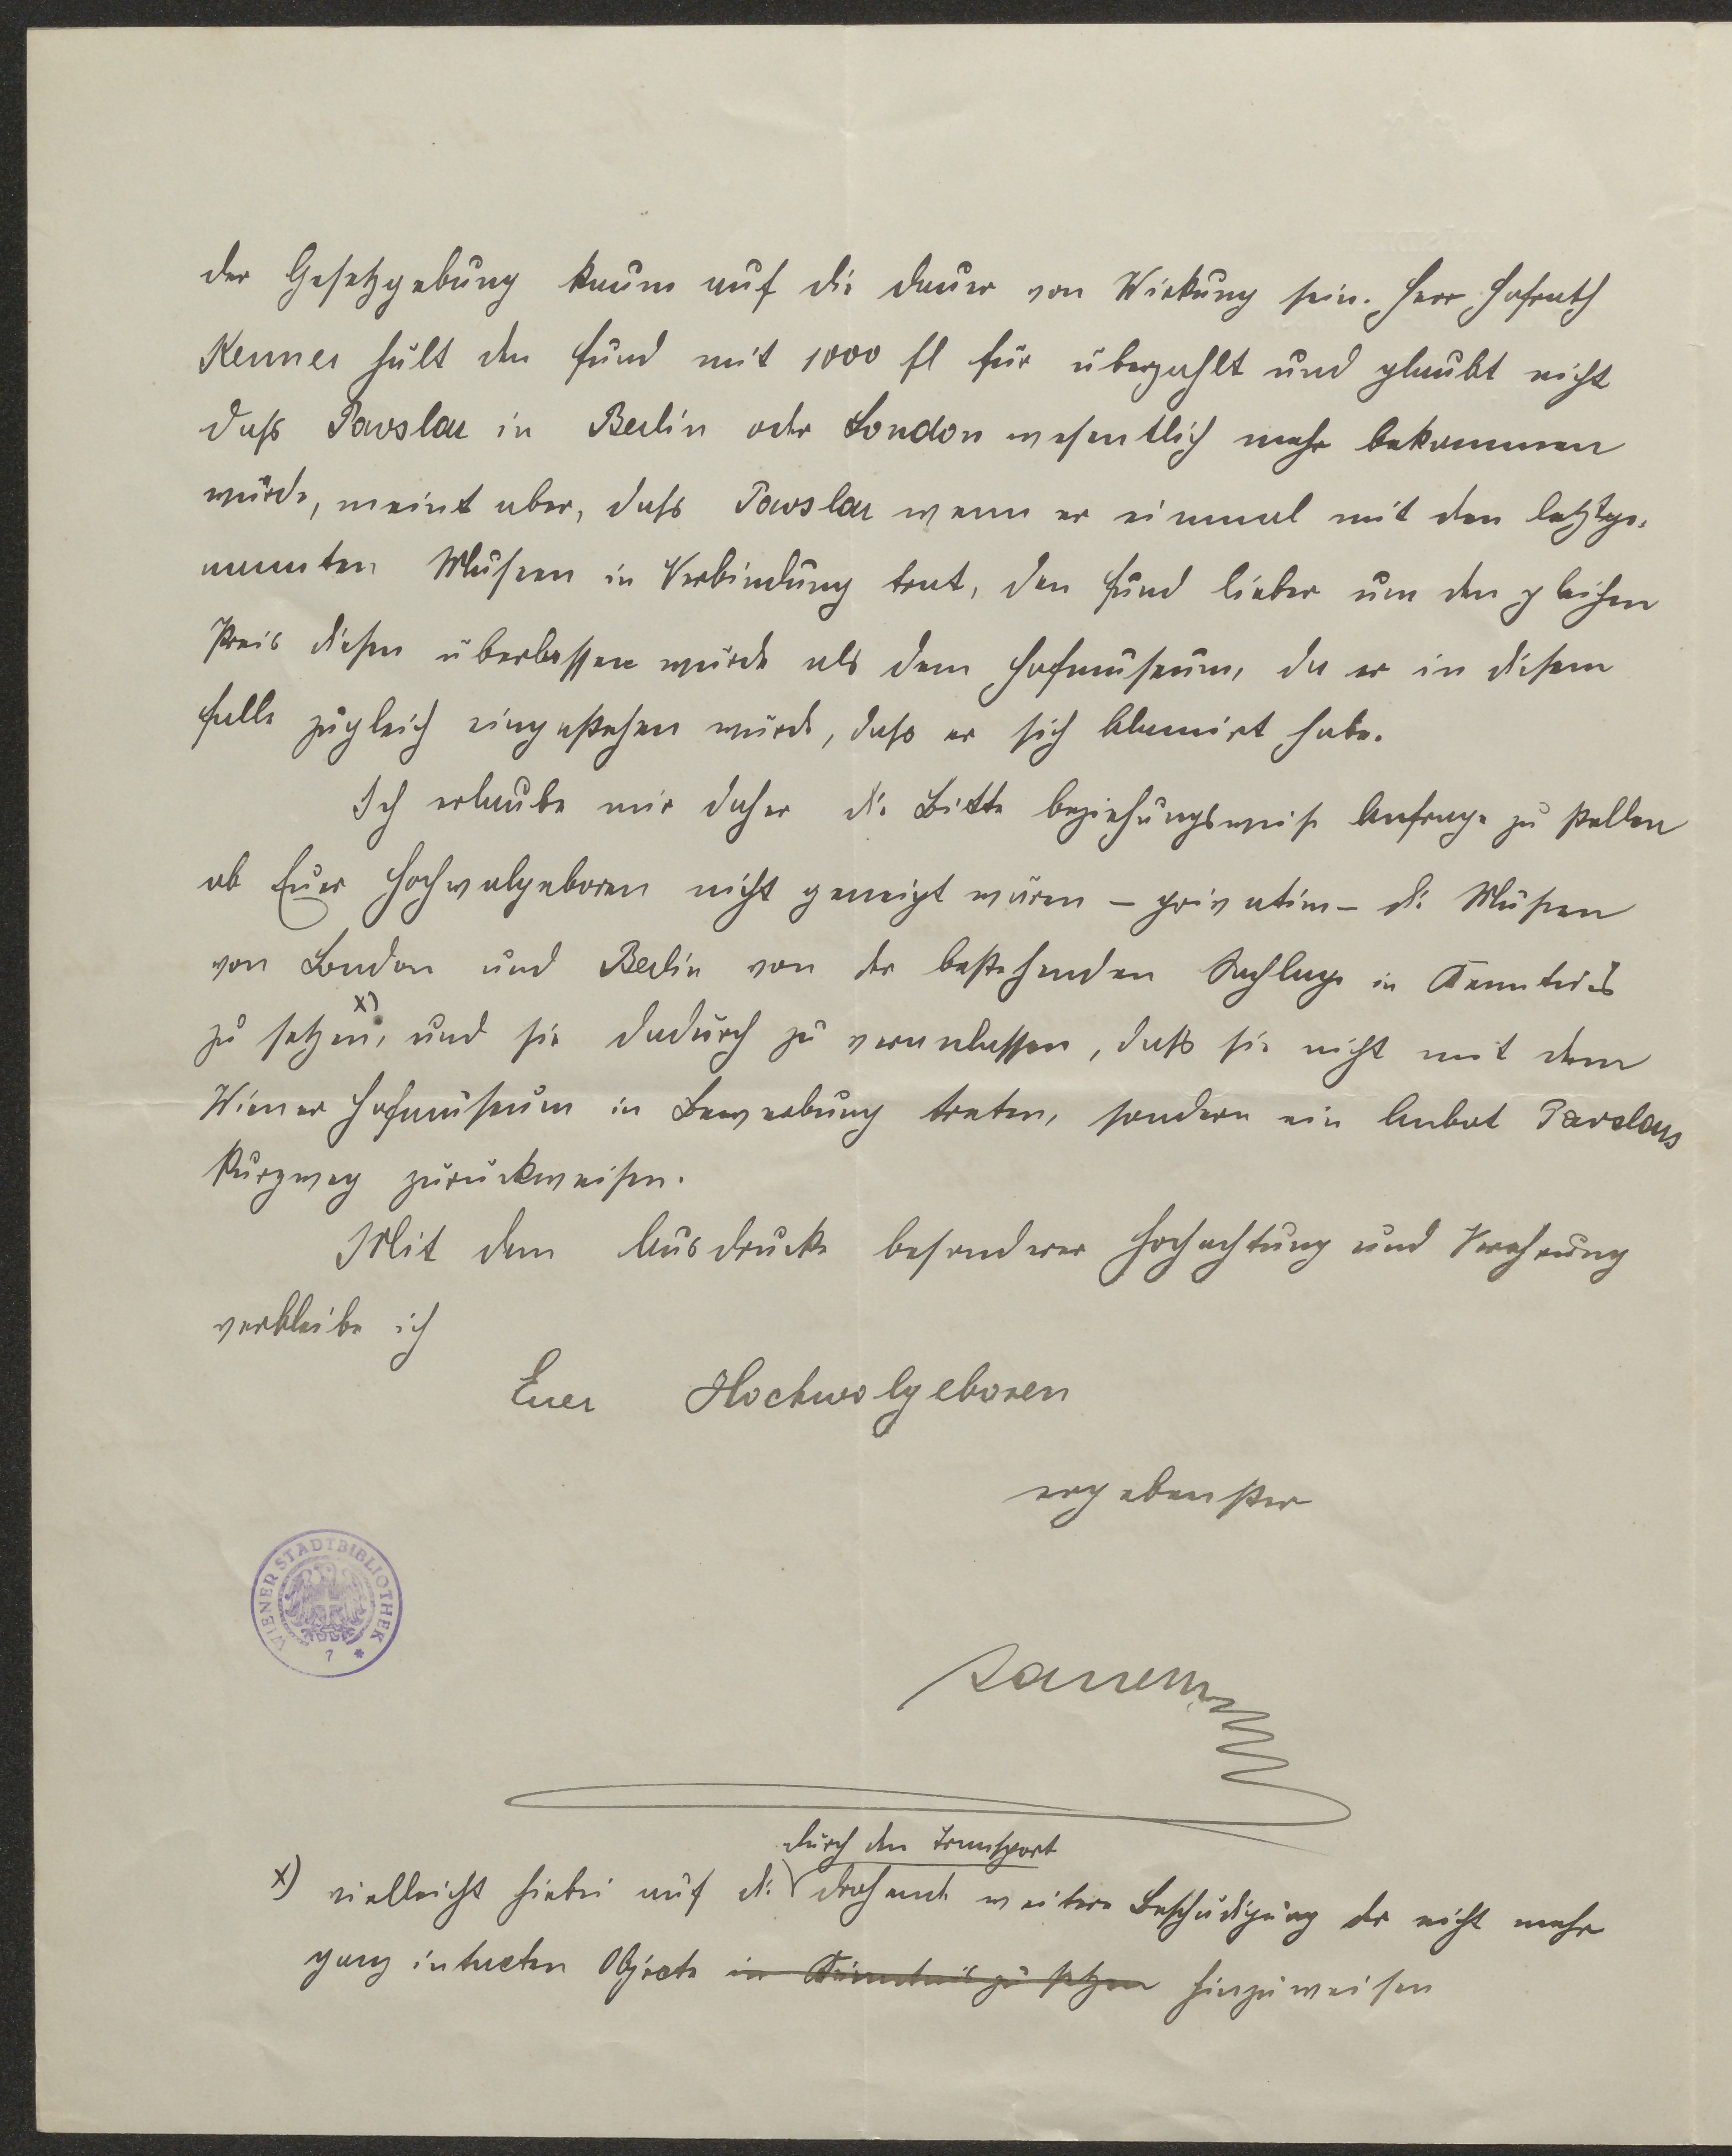 der Gesetzgebung kaum auf die Dauer von Wirkung sein. Herr Hofrath
Kenner hält den Fund mit 1000 fl für überzahlt und glaubt nicht
daß Pawslar in Berlin oder London wesentlich mehr bekommen
würde, meint aber, daß Pawslar wenn er einmal mit den letztge-
nannten Museen in Verbindung trat, den Fund lieber um den gleichen
Preis diesen überlassen würde als dem Hofmuseum, da er in diesem
Falle zugleich eingestehen würde, daß er sich blamirt habe.
Ich erlaube mir daher die Bitte beziehungsweise Anfrage zu stellen
ob Euer Hochwolgeboren nicht geneigt wären – privatim – die Museen
von London und Berlin von der bestehenden Sachlage in Kenntnis
x)
zu setzen, und sie dadurch zu veranlassen, daß sie nicht mit dem
Wiener Hofmuseum in Bewerbung treten, sondern ein Anbot
kurzweg zurückweisen.
Mit dem Ausdrucke besonderer Hochachtung und Verehrung
verbleibe ich
Euer Hochwolgeboren
ergebenster
WIENER STADTBIBLIOTHEK * 7
durch den Transport
x) vielleicht hiebei auf die drohende weitere Beschädigung der nicht mehr
ganz intacten Objecte in Kenntnis zu setzen hinzuweisen